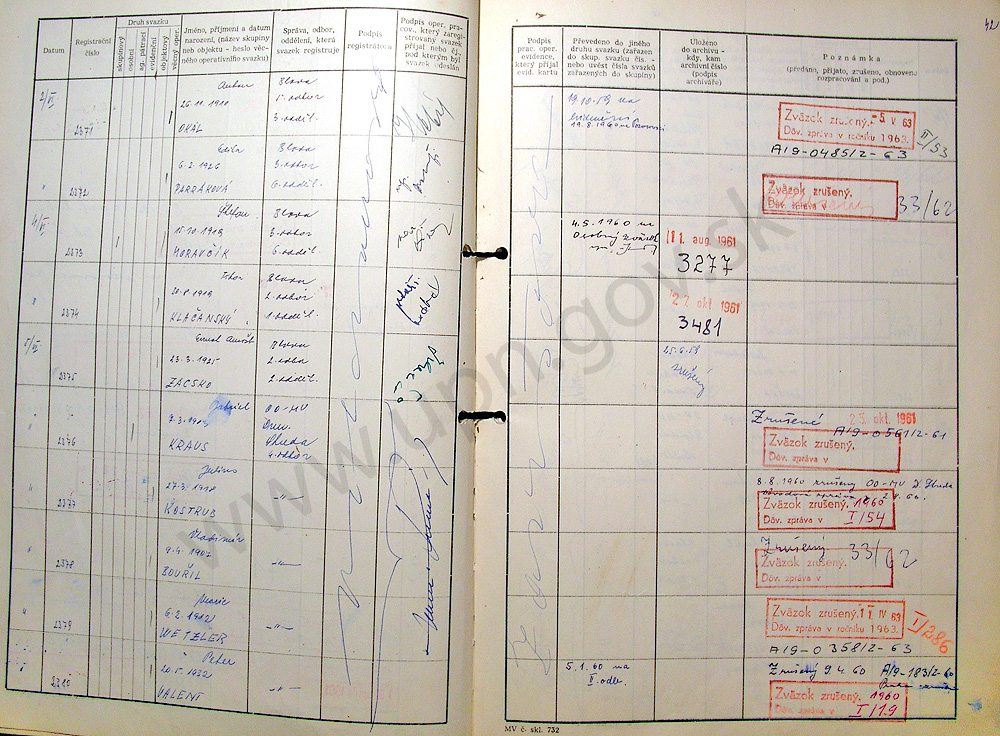 42
Datum
Registrační
číslo
Druh svazku
skupinový
osobní
ag. pátrací
evidenční
objektový
věcný oper.
Jméno, příjmení a datum
narození, (název skupiny
neb objektu - heslo věc-
ného operativního svazku)
Správa, odbor,
oddělení, která
svazek registruje
Podpis
registrátora
Podpis oper. pra-
cov., který zaregi-
strovaný svazek
přijal nebo čj.
pod kterým byl
svazek odeslán
2/VI
2371
Anton
26.11.1910
OKÁL
Blava
5. odbor
3. oddël.
"
2372
Edita
6.2.1926
PARRÁKOVÁ
Blava
3. odbor
6. oddël.
4/VI
2373
Štefan
15.10.1913
MORAVČÍK
Blava
3. odbor
6. oddël.
"
2374
Tibor
20.8.1919
KLAČANSKÝ
Blava
2. odbor
1. oddël.
5/VI
2375
23.3.1925
ZACSKO
Blava
2. odbor
2. oddël.
"
2376
Gabriel
KRAUS
OO-MV
Dun.
Streda
4. odbor
"
2377
Julius
27.3.1918
KOSTRUB
-"-
"
2378
Vladimír
9.4.1907
BOUŘIL
-"-
"
2379
Marie
6.2.1912
WETZLER
-"-
"
2380
Peter
20.5.1932
VALENT
-"-
Podpis
prac. oper.
evidence,
který přijal
evid. kartu
Převedeno do jiného
druhu svazku (zařazen
do skup. svazku čís. -
nebo uvést čísla svazků
zařazených do skupiny)
Uloženo
do archivu -
kdy, kam
archivní číslo
(podpis
archiváře)
Poznámka
(předáno, přijato, zrušeno, obnoveno
rozpracování a pod.)
19.10.59 na
Zväzok zrušený. -5. V 63
Dôv. správa v ročníku 1963.
II/53
A19-0485/2-63
Zväzok zrušený.
Dôv. zpráva v
33/62
4.5.1960 na
Osobný zväzok
11. aug. 1961
3277
22. okt. 1961
3481
25.6.59
zrušený
Zrušené
23. okt. 1961
A19-0561/2-61
Zväzok zrušený.
Dôv. zpráva v
8.8.1960 zrušený OO-MV D. Streda
Zväzok zrušený. 1960
Dôv. zpráva v I/54
Zrušený
33/62
Zväzok zrušený.
Dôv. zpráva v
Zväzok zrušený. 11. IV 63
Dôv. zpráva v ročníku 1963.
I/286
A19-0358/2-63
5.1.60 na
II. odb.
Zrušený 9.4.60 A/9-183/2-60
Zväzok zrušený. 1960
Dôv. zpráva v I/19
MV č. skl. 732
www.upn.gov.sk